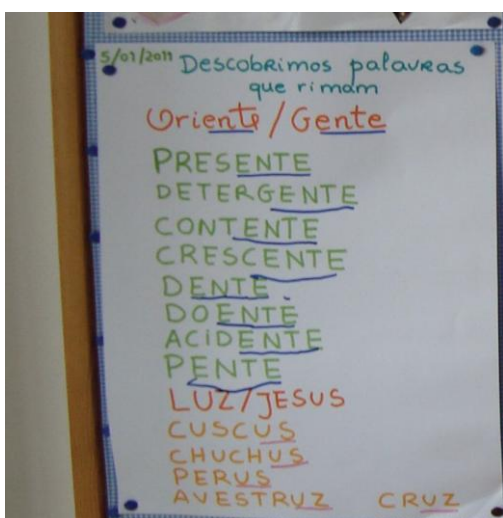 5/01/2011 Descobrimos palavras
que rimam
Oriente/Gente
PRESENTE
DETERGENTE
CONTENTE
CRESCENTE
DENTE
DOENTE
ACIDENTE
PENTE
LUZ/JESUS
CUSCUS
CHUCHUS
PERUS
AVESTRUZ CRUZ